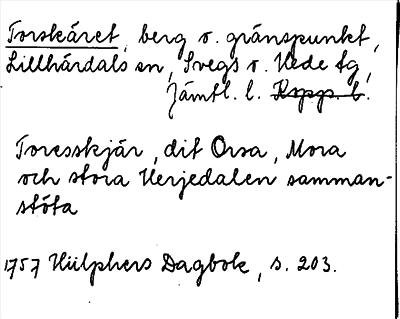 Torskäret, berg o. gränspunkt,
Lillhärdals sn, Svegs o. Hede tg,
Jämtl. l. Kopp. l.
Toresskjär, dit Orsa, Mora
och stora Herjedalen samman-
stöta
1757 Hülphers Dagbok, s. 203.